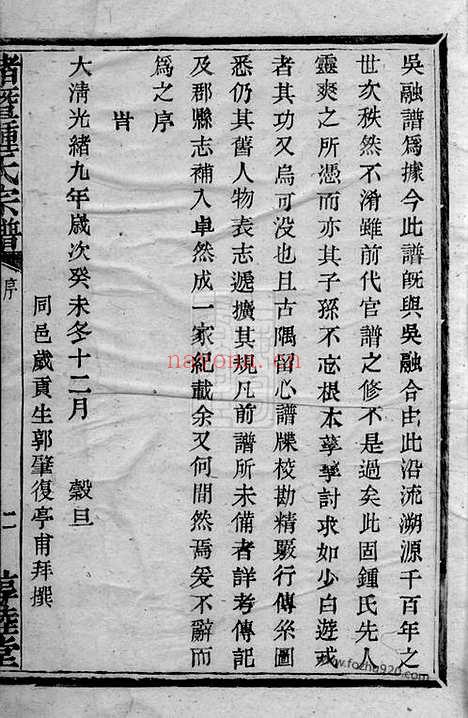 吳融譜爲據今此譜旣與吳融合由此沿流溯源千百年之
世次秩然不淆雖前代官譜之修不是過矣此固鍾氏先人
靈爽之所憑而亦其子孫不忘根本孳孳討求如少白遊戎
者其功又烏可没也且古隅留心譜牒校勘精覈行傳糸圖
悉仍其舊人物表志遞擴其規凡前譜所未備者詳考傳記
及郡縣志補入卓然成一家紀載余又何間然焉爰不辭而
爲之序
旹
大淸光緒九年歲次癸未冬十二月 穀旦
同邑歲貢生郭肇復亭甫拜撰
諸暨鍾氏宗譜 序 二 惇睦堂
nayong.cn
www.fozhu920.com